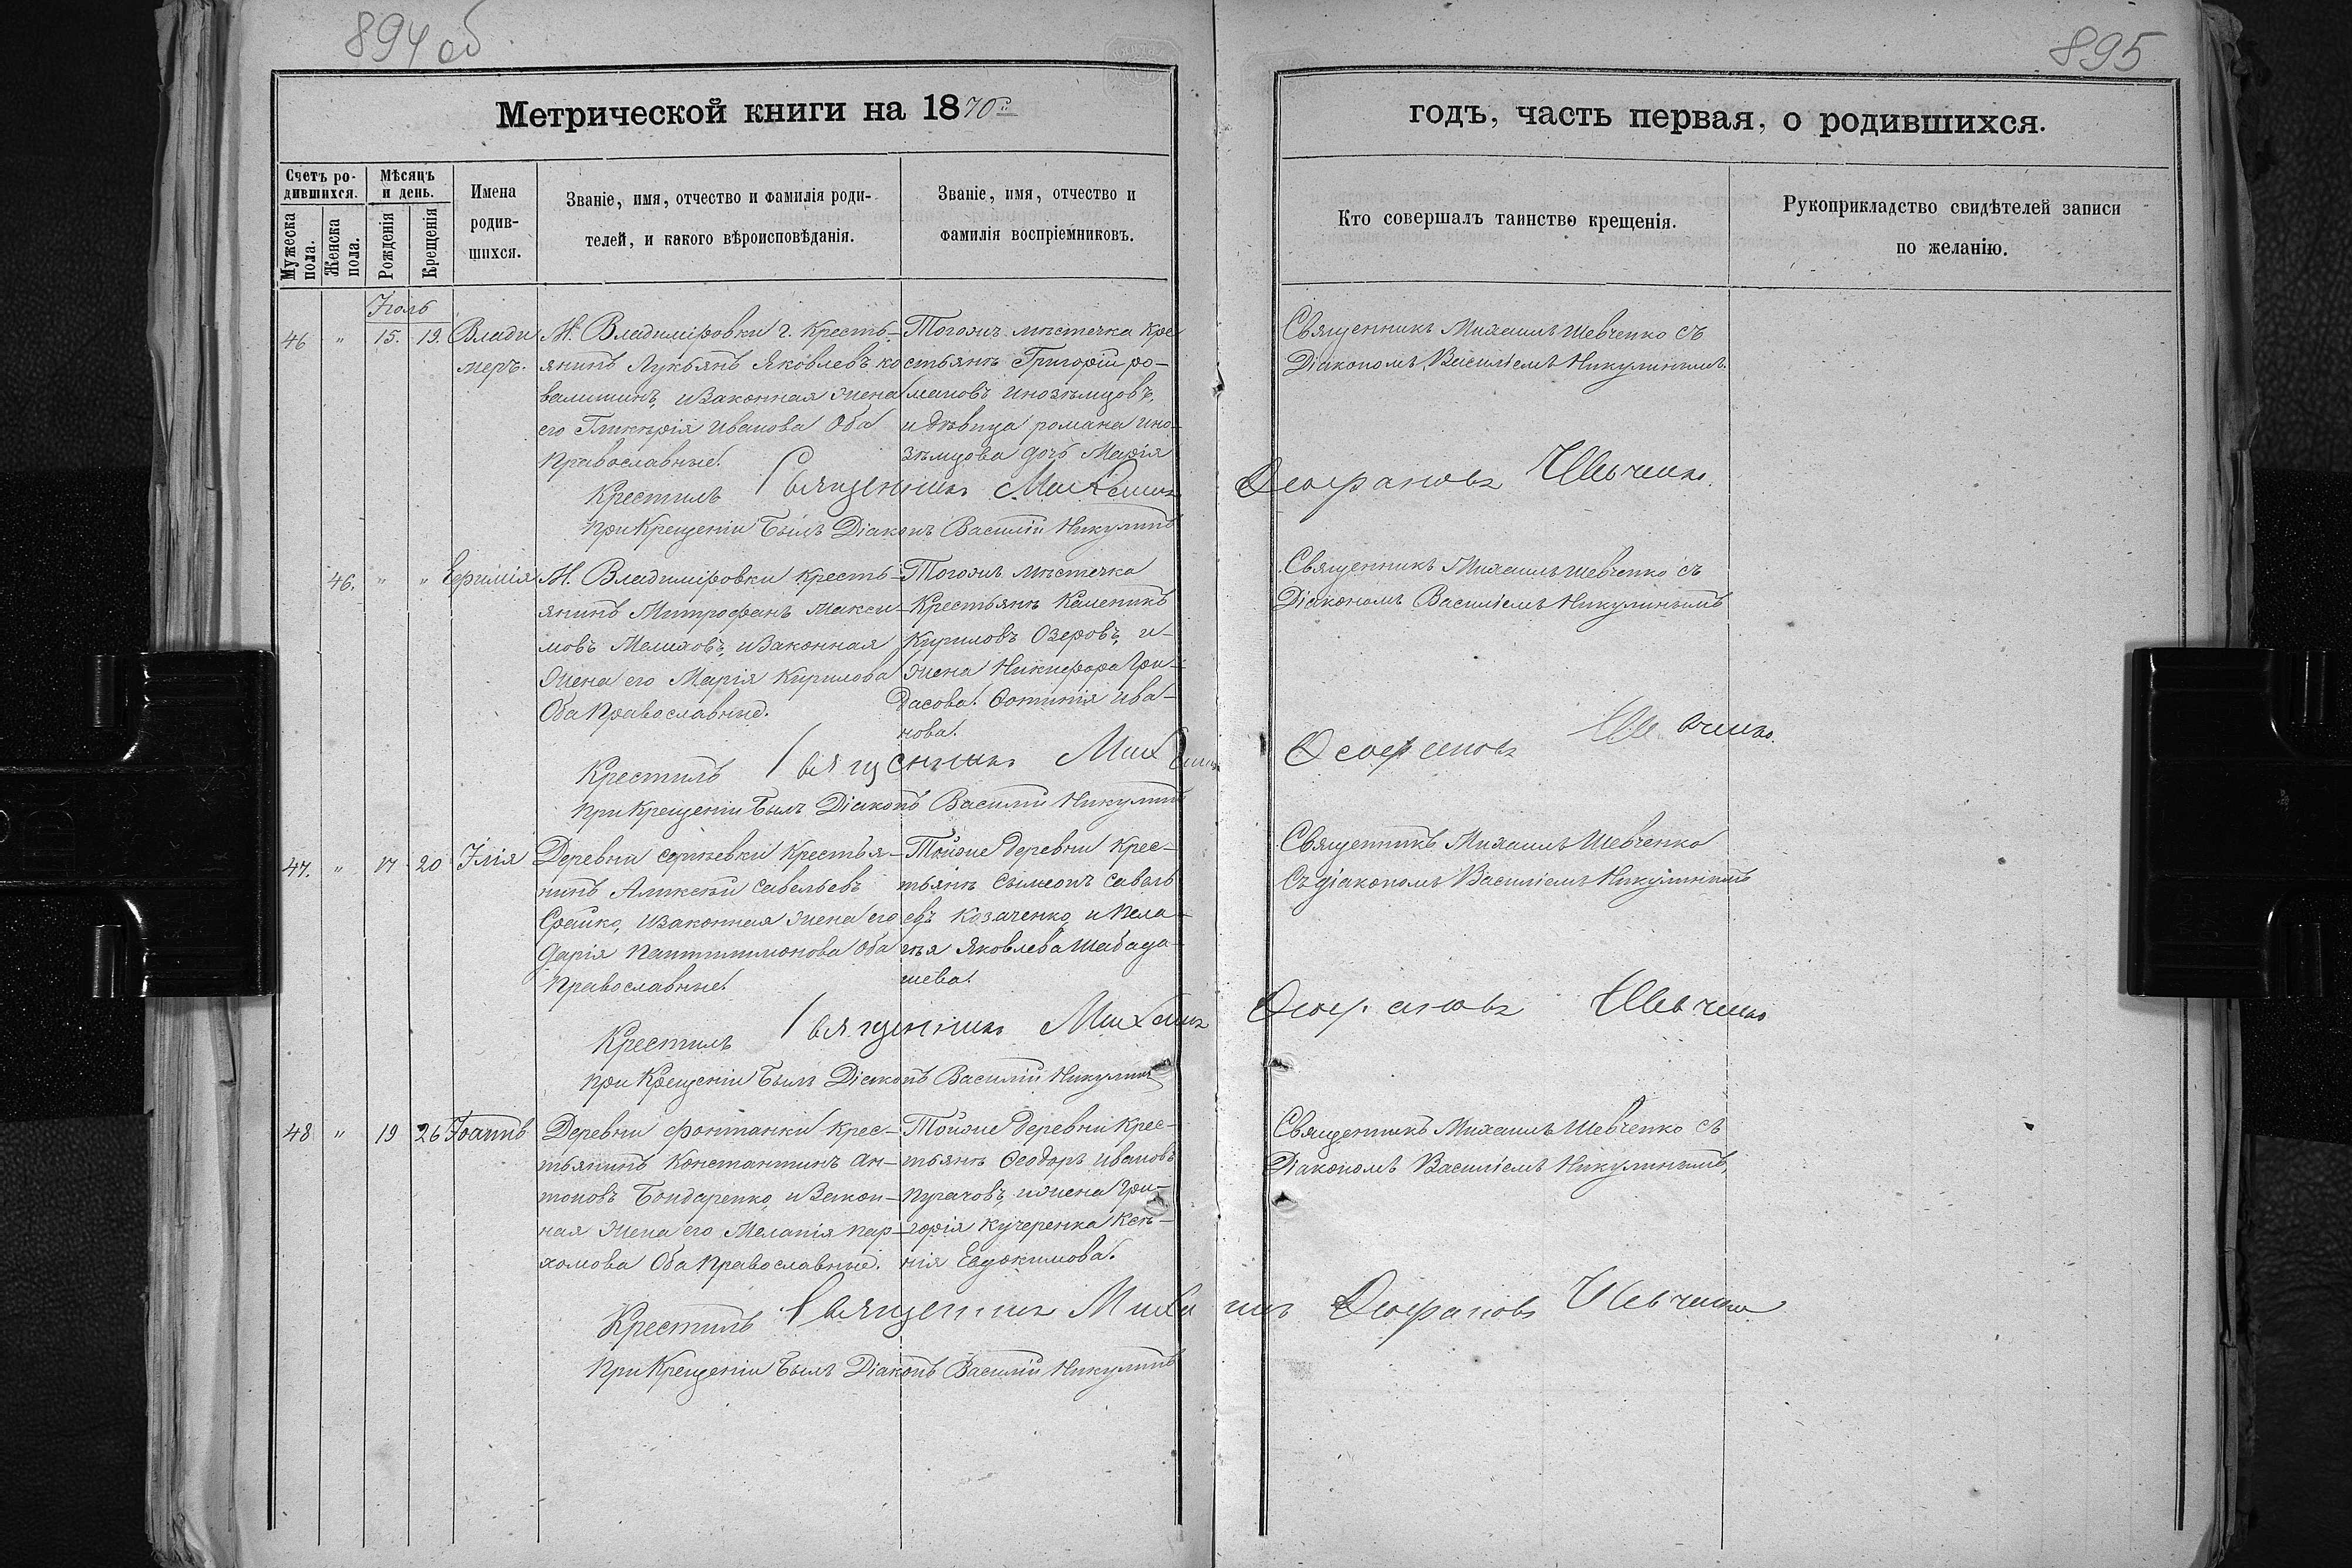 894 об
895
Метрической книги на 1870 г.
годъ, часть первая, о родившихся.
Счетъ ро-
дившихся.
Мужеска пола.
Женска пола.
Мѣсяцъ
и день.
Рожденія
Крещенія
Имена
родив-
шихся.
Званіе, имя, отчество и фамилія роди-
телей, и какого вѣроисповѣданія.
Званіе, имя, отчество и
фамилія воспріемниковъ.
Кто совершалъ таинство крещенія.
Рукоприкладство свидѣтелей записи
по желанію.
Іюль
46 " 15. 19.
Влади
меръ.
М. Владиміровки г. Кресть-
янинъ Лукьянъ Яковлевъ ко
валишинъ, и законная жена
его Гликѣрія Иванова Оба
православные.
Тогожъ мѣстечка Кре
стьянъ Григорій ро-
мановъ Иноземцовъ,
и дѣвица романа Ино-
земцова дочь Марія
Священникъ Михаилъ Шевченко съ
Діакономъ Василіемъ Никулинымъ.
Крестилъ Священникъ Михаилъ Феофановъ Шевченко.
При Крещеніи былъ Діаконъ Василій Никулинъ
46. " "
Ефимія
М. Владиміровки Кресть-
янинъ Митрофанъ Макси-
мовъ Мелиховъ, и законная
жена его Марія Кирилова
Оба православные.
Тогожъ мѣстечка
Крестьянъ Каленикъ
Кириловъ Озеровъ, и-
жена Никифора Гри-
дасова Фотинія Ива-
нова.
Священникъ Михаилъ Шевченко съ
Діакономъ Василіемъ Никулинымъ
Крестилъ Священникъ Михаилъ Феофановъ Шевченко.
При Крещеніи былъ Діаконъ Василій Никулинъ
47. " 17 20
Илія
Деревни Сергѣевки Крестья-
нинъ Аликсѣй Савельевъ
Срайко, и законная жена его
Дарія Пантилимонова Оба
православные.
Тойже деревни Крес-
тьянъ Сѵмеонъ Савель
евъ Козаченко, и Пела-
гѣя Яковлева Шабада-
шева.
Священникъ Михаилъ Шевченко
съ діакономъ Василіемъ Никулинымъ
Крестилъ Священникъ Михаилъ Феофановъ Шевченко
При Крещеніи былъ Діаконъ Василій Никулинъ
48 " 19 26
Іоаннъ
Деревни Фонтанки Крес-
тьянинъ Константинъ Ан-
тоновъ Бондаренко, и Закон-
ная жена его Меланія пар-
хомова Оба православные.
Тойже деревни Крес-
тьянъ Феодоръ Ивановъ
Пугачовъ, и жена Гри-
горія Кучеренка Ксѣ-
нія Евдокимова.
Священникъ Михаилъ Шевченко съ
Діакономъ Василіемъ Никулинымъ,
Крестилъ Священникъ Михаилъ Феофановъ Шевченко
При Крещеніи былъ Діаконъ Василій Никулинъ